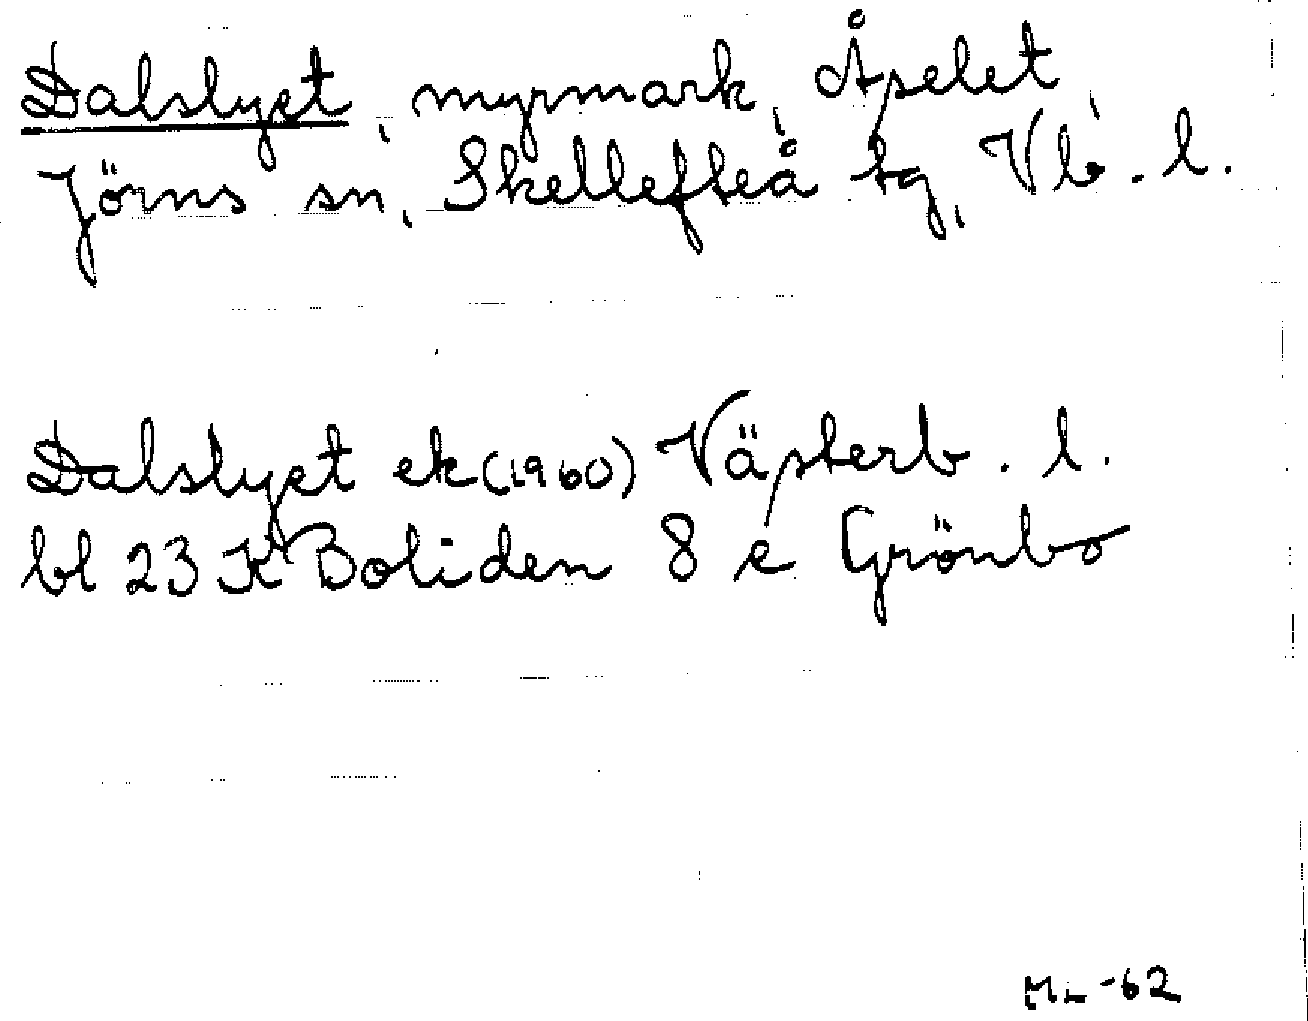 Dalslyet, myrmark, Åselet,
Jörns sn, Skellefteå tg, Vb. l.
Dalslyet ek (1960) Västerb. l.
bl 23 K Boliden 8 e Grönbo
ML-62